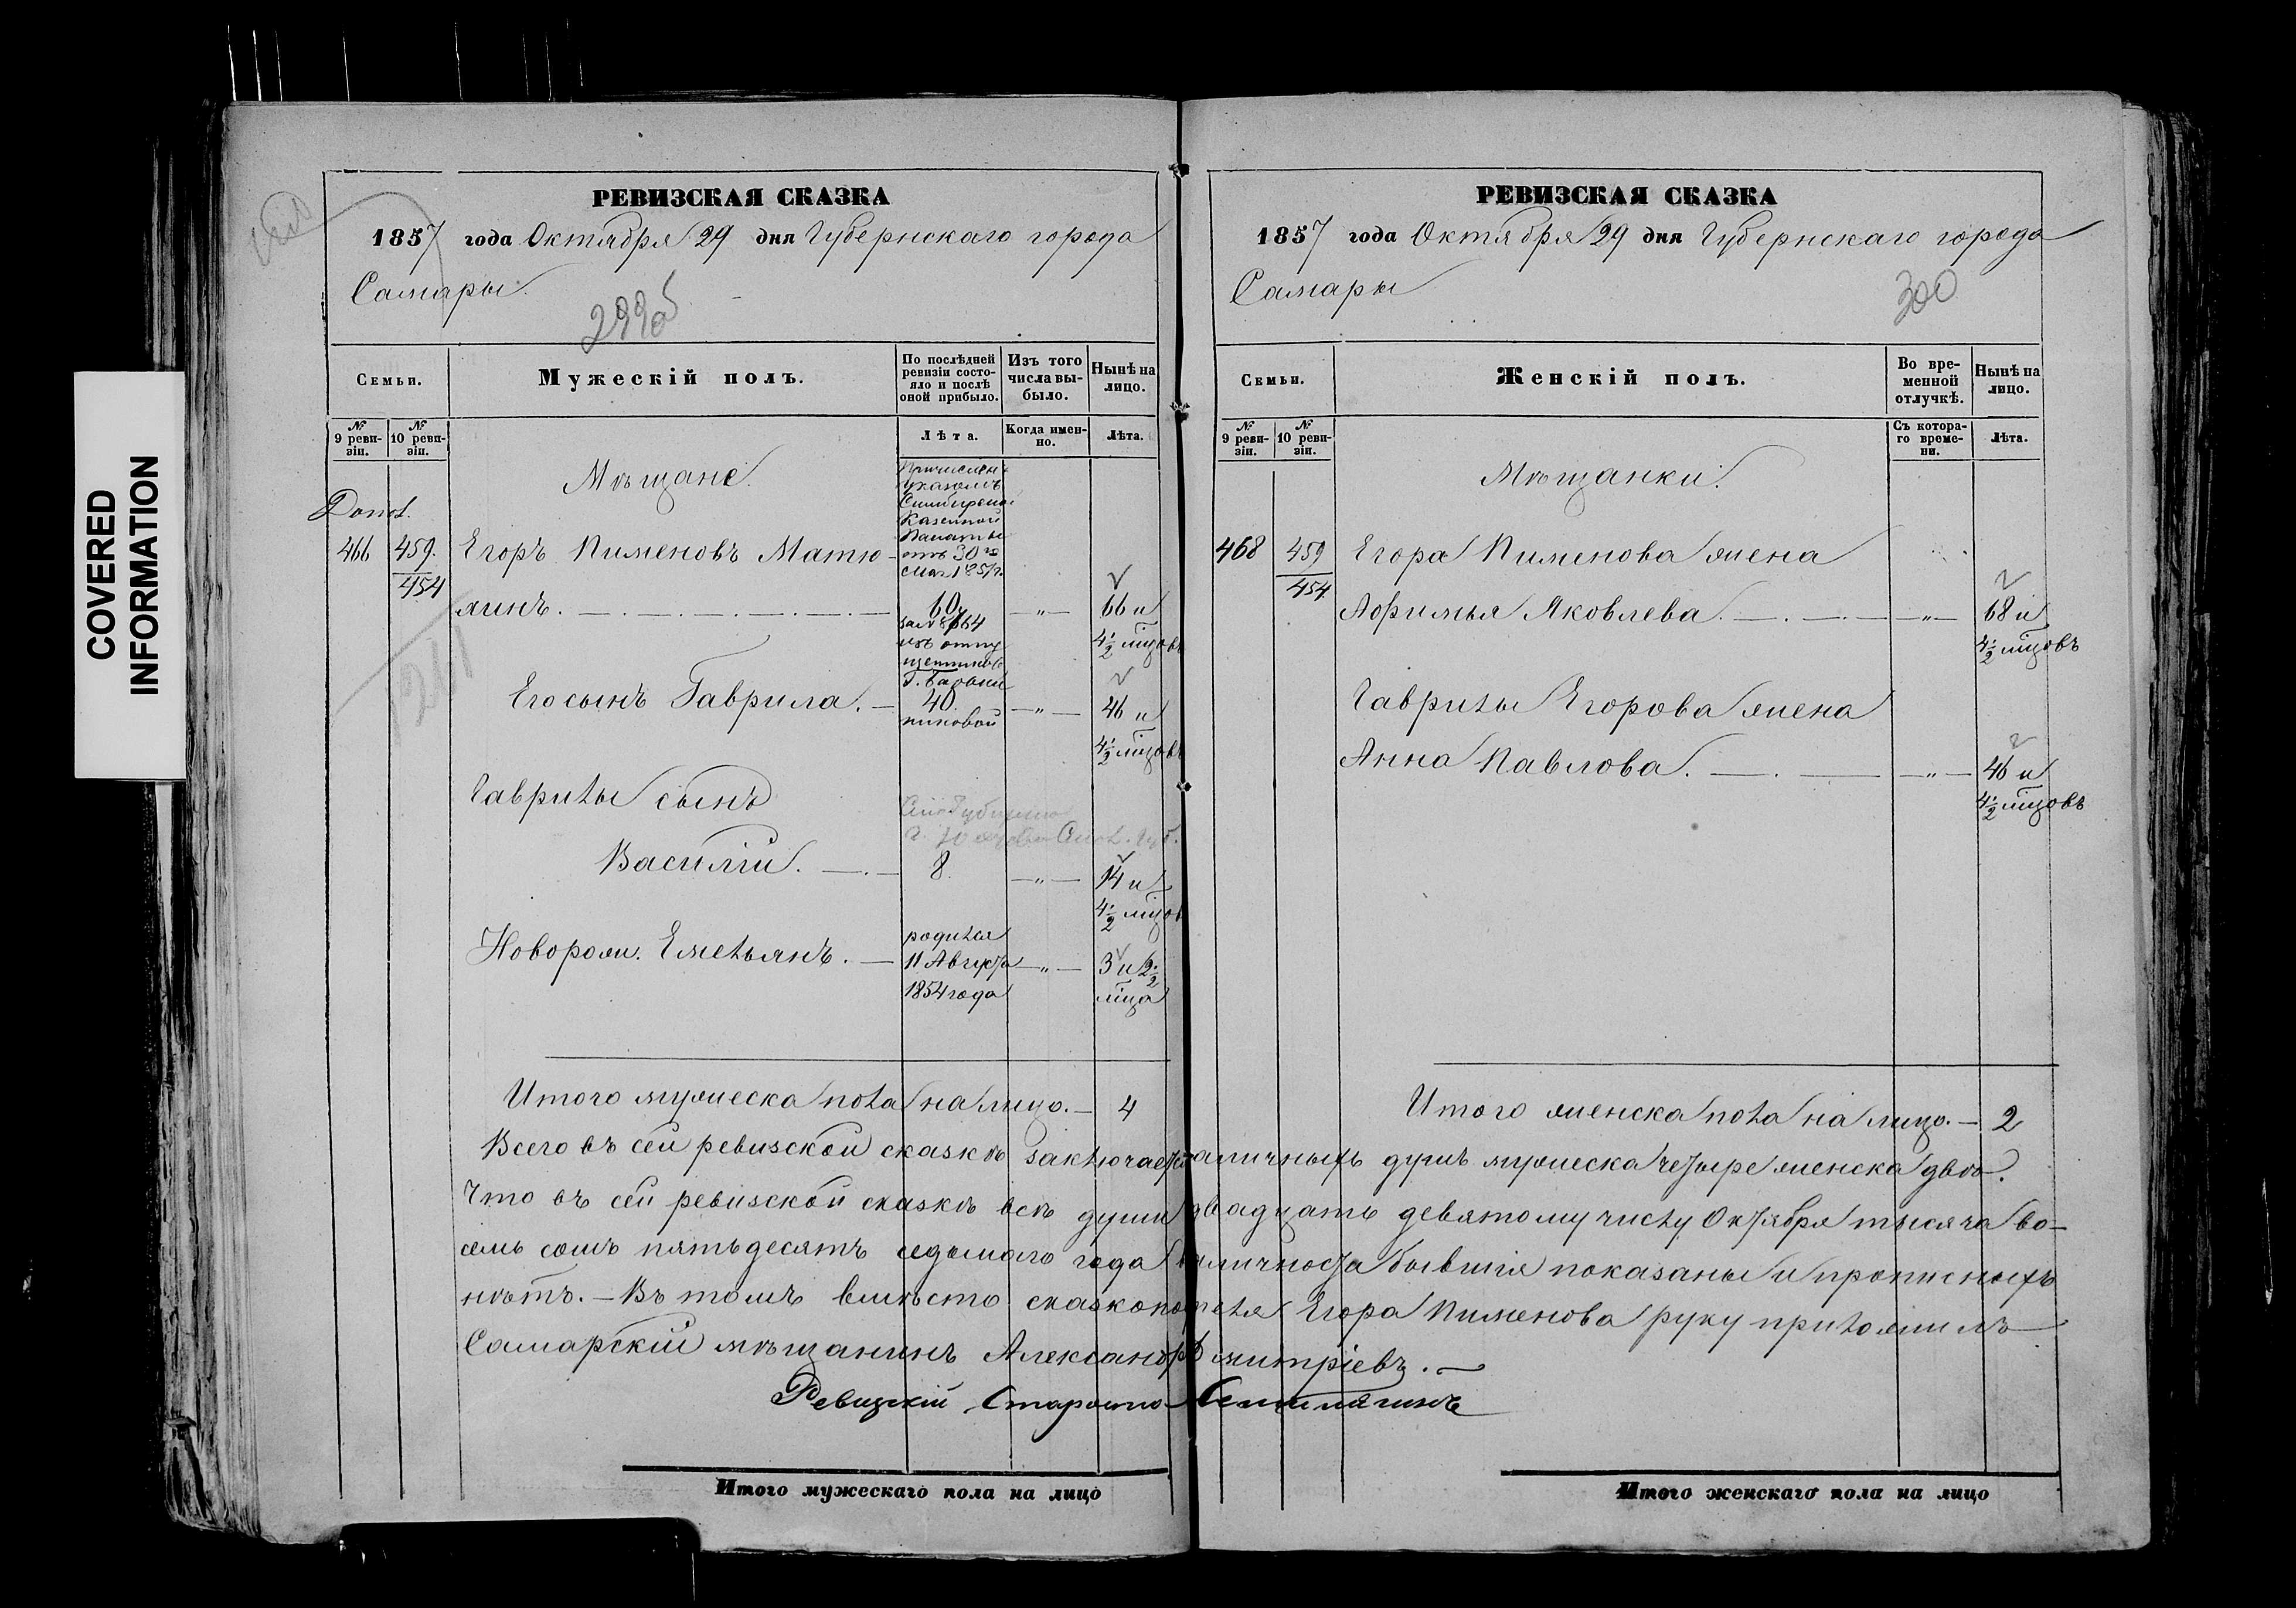 COVERED
INFORMATION
РЕВИЗСКАЯ СКАЗКА
1857 года Октября 29 дня Губернскаго города
Самары
299об
Семьи.
Мужескій полъ.
По послѣдней ревизіи состояло и послѣ оной прибыло.
Изъ того числа выбыло.
Нынѣ на лицо.
№ 9 ревизіи.
№ 10 ревизіи.
Лѣта.
Когда именно.
Лѣта.
Мѣщане.
Причисленъ
Указомъ
Симбирской
Казенной
Палаты
отъ 30го
466 459. Егоръ Пименовъ Матю-
454
линъ. 60 " 66 и
за № 8664
изъ отпу
4 1/2 мѣцовъ
Его сынъ Гаврила. 40 " 46 и
4 1/2 мѣцовъ
Гаврилы сынъ
Василій. 8. " 14 и
4 1/2 мѣцов
Новорож. Емельянъ. родился
11 Августа " 3 и 2 1/2
1854 года мѣца
Итого мужеска пола на лицо. 4
РЕВИЗСКАЯ СКАЗКА
1857 года Октября 29 дня Губернскаго города
Самары
300
Семьи.
Женскій полъ.
Во временной отлучкѣ.
Нынѣ на лицо.
№ 9 ревизіи.
№ 10 ревизіи.
Съ котораго времени.
Лѣта.
Мѣщанки.
468 459 Егора Пименова жена
454
Афимья Яковлева. " 68 и
4 1/2 мѣцовъ
Гаврилы Егорова жена
Анна Павлова. " 46 и
4 1/2 мѣцовъ
Итого женска пола на лицо. 2
Всего въ сей ревизской сказкѣ заключается наличныхъ душъ мужеска четыре женска двѣ.
Что въ сей ревизской сказкѣ всѣ души двадцать девятому числу Октября тысяча во-
семь сотъ пятьдесятъ седьмаго года наличноста бывшія показаны и прописныхъ
нѣтъ. – Въ томъ вмѣсто сказкоподателя Егора Пименова руку приложилъ
Самарскій мѣщанинъ Александръ Дмитріевъ. –
Ревизскій Староста
Итого мужескаго пола на лицо
Итого женскаго пола на лицо